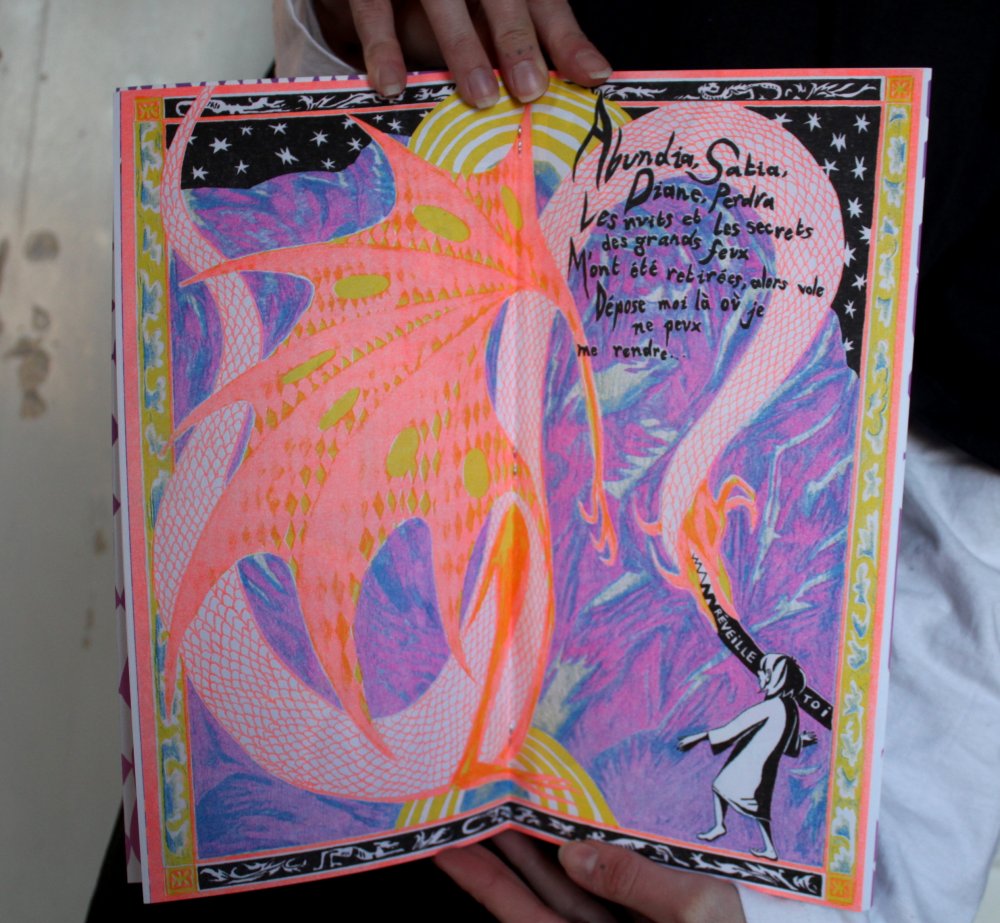 Abundia, Satia,
Diane, Perdra
Les nuits et les secrets
des grands feux
M'ont été retirées, alors vole
Dépose moi là où je
ne peux
me rendre...
REVEILLE TOI